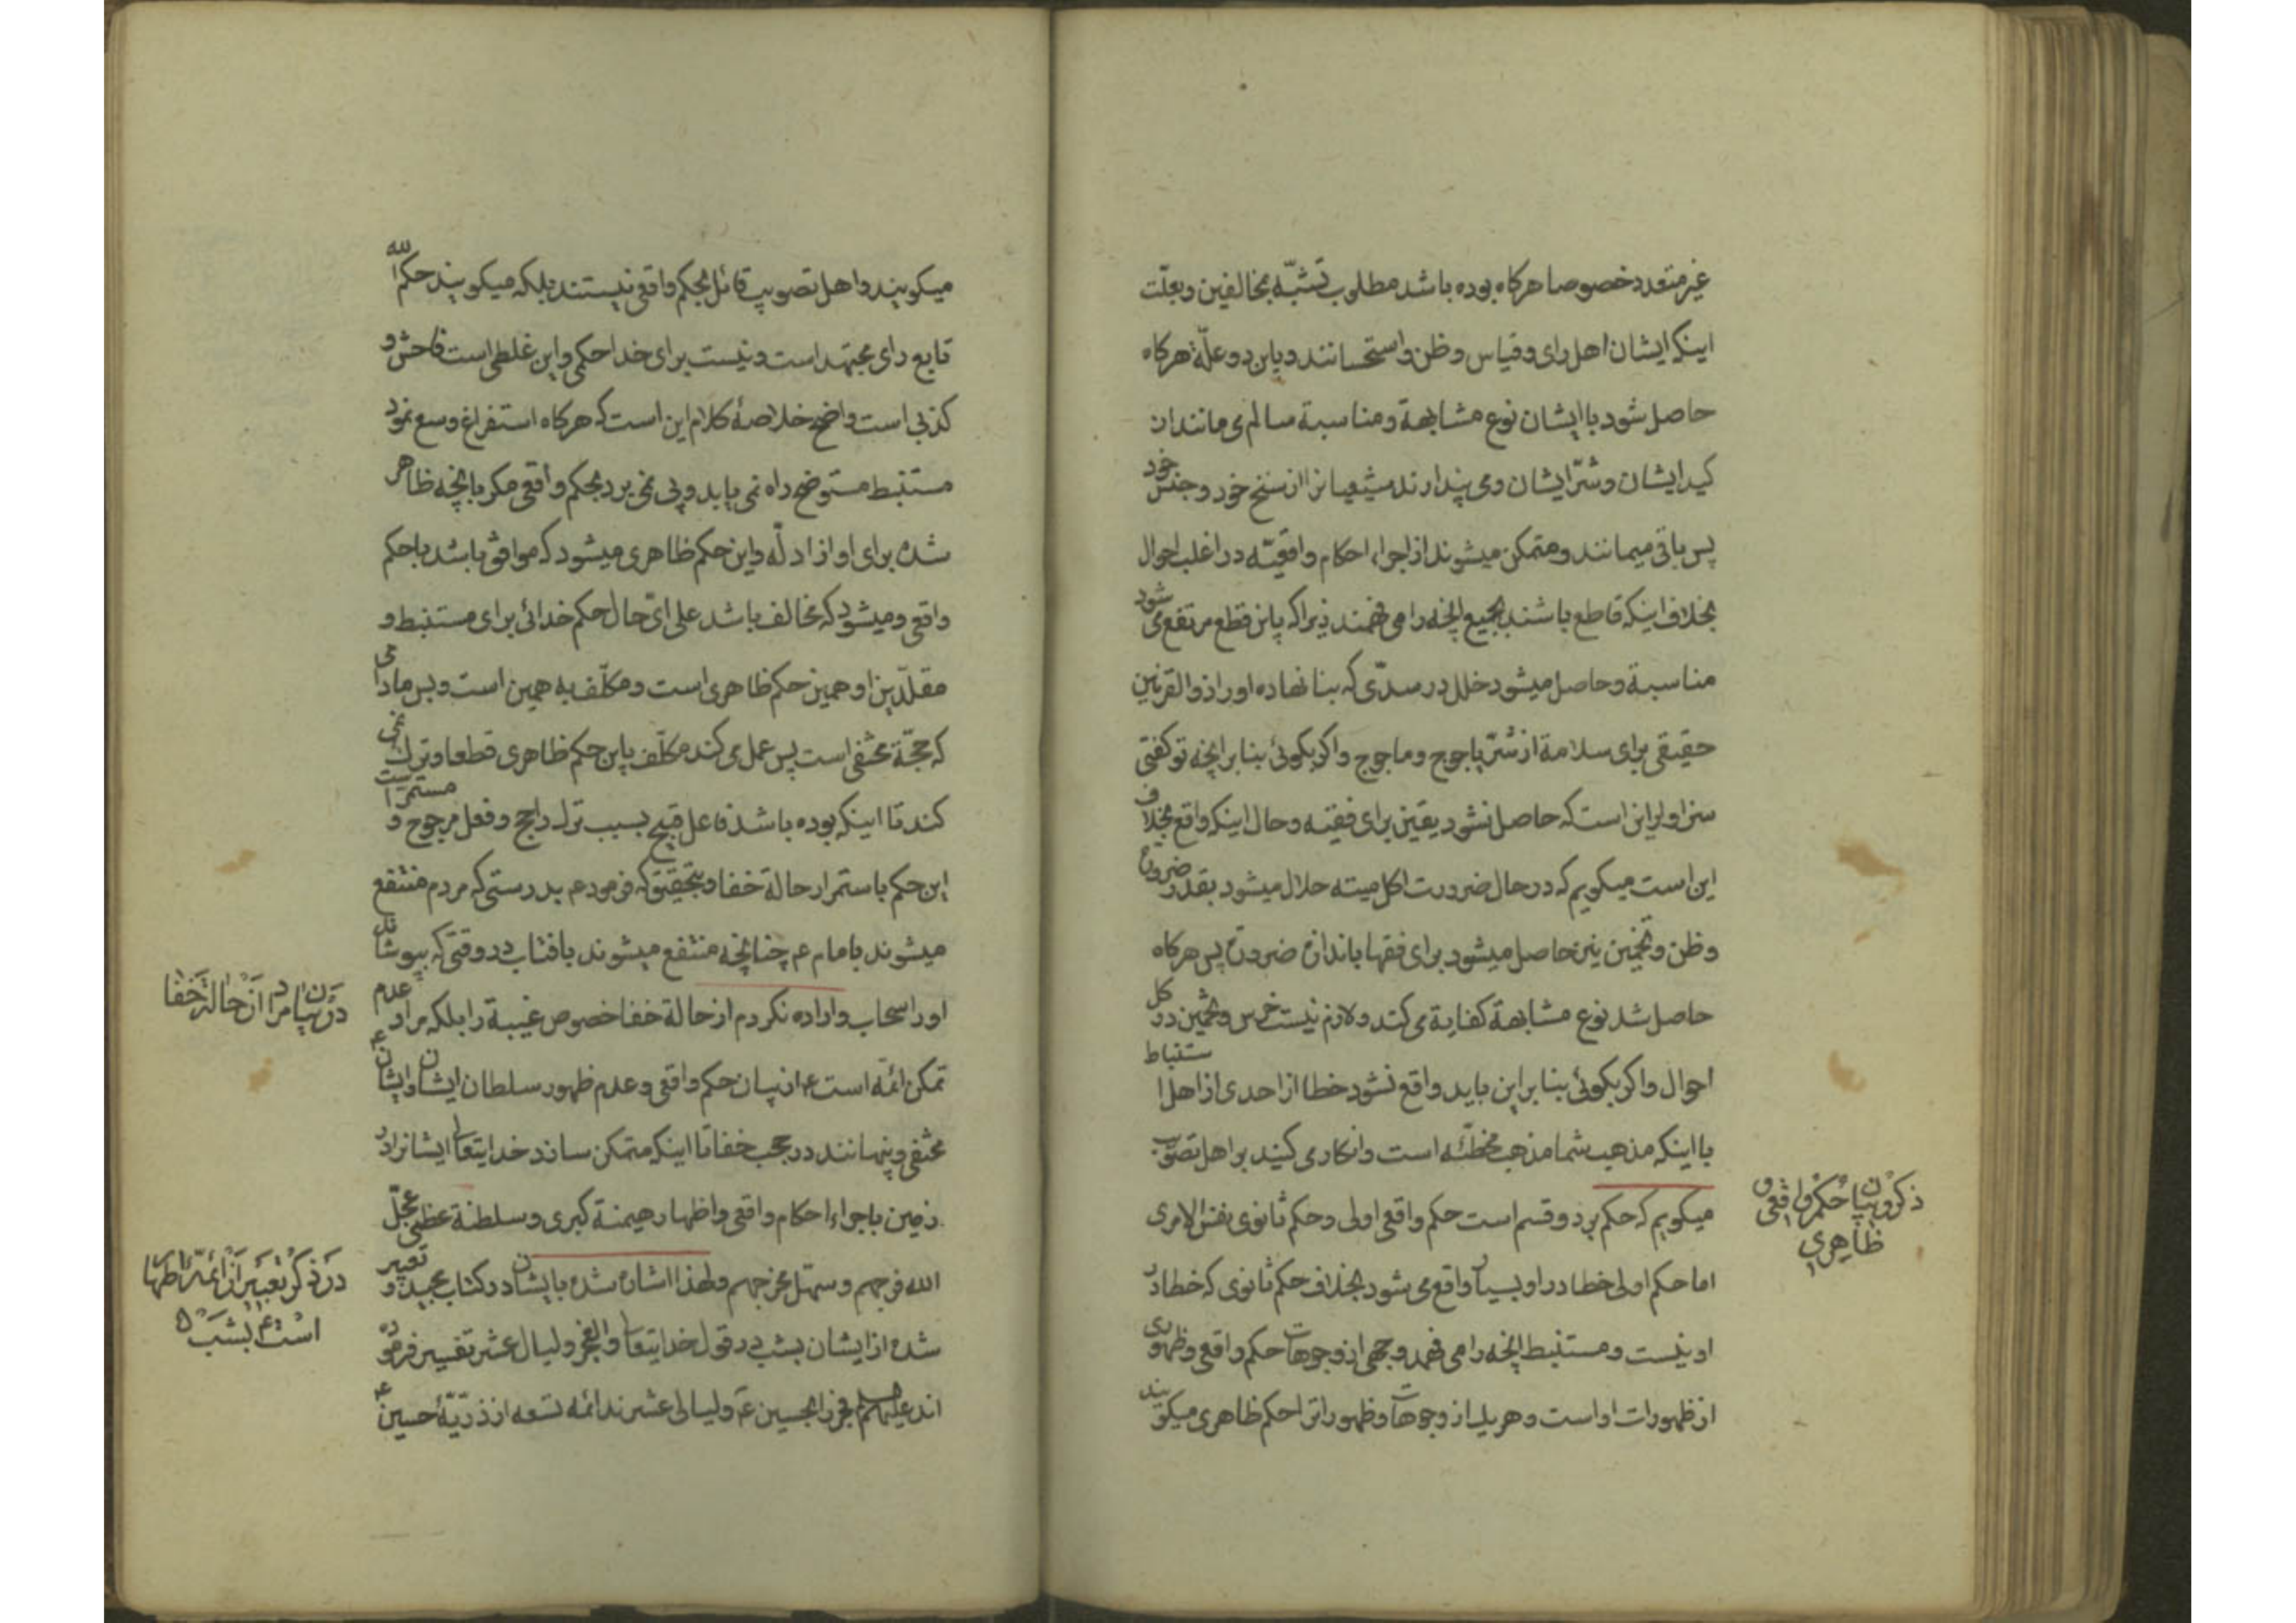 غیر متعدد خصوصا هرکاه بوده باشد مطلوب تشبّه بمخالفین و بعلّت
اینکه ایشان اهل رای و قیاس و ظن و استحسانند و باین دو علّة هرکاه
حاصل شود با ایشان نوع مشابهة و مناسبة سالم می مانند از
کید ایشان و شرّ ایشان و می پندارند شیعیانرا از سنخ خود و جنس خود
پس باقی میمانند و متمکن میشوند از اجراء احکام واقعیّه در اغلب احوال
بخلاف اینکه قاطع باشند بجمیع انچه را می فهمند زیرا که باین قطع مرتفع می شود
مناسبة و حاصل میشود خلل در سدّی که بنا نهاده او را ذوالقرنین
حقیقی برای سلامة از شرّ یاجوج و ماجوج و اکر بکوئی بنا بر انچه تو کفتی
سزاوار این است که حاصل نشود یقین برای فقیه و حال اینکه واقع بخلاف
این است میکویم که در حال ضرورت اکل میته حلال میشود بقدر ضرورة
و ظن و تخمین نیز حاصل میشود برای فقها باندازه ضرورة پس هرکاه
حاصل شد نوع مشابهة کفایة می کند و لازم نیست خرص و تخمین در کل
احوال و اکر بکوئی بنا بر این باید واقع نشود خطا از احدی از اهل استنباط
با اینکه مذهب شما مذهب مخطّئه است و انکار می کنید بر اهل تصویب
میکویم که حکم بر دو قسم است حکم واقعی اولی و حکم ثانوی نفس الامری
ذکر و بیان حکم واقعی و
ظاهری
اما حکم اولی خطا در او بسیار واقع می شود بخلاف حکم ثانوی که خطا در
او نیست و مستنبط انچه را می فهمد وجهی از وجوهات حکم واقعی و ظهوری
از ظهورات او است و هر یک از وجوهات و ظهورات را حکم ظاهری میکویند
میکویند و اهل تصویب قائل بحکم واقعی نیستند بلکه میکویند حکم الله
تابع رای مجتهد است و نیست برای خدا حکمی و این غلطی است فاحش و
کذبی است واضح خلاصۀ کلام این است که هرکاه استفراغ وسع نمود
مستنبط مستوضح راه نمی یابد و پی نمی برد بحکم واقعی مکر بانچه ظاهر
شده برای او از ادلّه و این حکم ظاهری میشود که موافق باشد با حکم
واقعی و میشود که مخالف باشد علی ایّ حال حکم خدائی برای مستنبط و
مقلّدین او همین حکم ظاهری است و مکلّف به همین است و بس مادامی
که حجّة مختفی است پس عمل می کند مکلّف باین حکم ظاهری قطعا و ترک نمی
کند تا اینکه بوده باشد فاعل قبیح بسبب ترک راجح و فعل مرجوح و مستمر است
این حکم باستمرار حالة خفا و بتحقیق که فرمود ع بدرستی که مردم منتفع
میشوند بامام ع چنانچه منتفع میشوند بافتاب در وقتی که بپوشاند
او را سحاب و اراده نکردم از حالة خفا خصوص غیبة را بلکه مراد عدم
در بیان مراد از حالة خفا
تمکن ائمه است ع از بیان حکم واقعی و عدم ظهور سلطان ایشان و ایشان ع
مختفی و پنهانند در حجب خفا تا اینکه متمکن سازد خدایتعالی ایشانرا در
زمین باجراء احکام واقعی و اظهار هیمنة کبری و سلطنة عظمی عجّل
الله فرجهم و سهّل مخرجهم و لهذا اشاره شده بایشان در کتاب مجید و تعبیر
در ذکر تعبیر از ائمّۀ اطهار
است ع بشب
شده از ایشان بشب در قول خدایتعالی والفجر و لیال عشر تفسیر فرموده
اند علیهم السلام فجر را بحسین ع و لیالی عشرند ائمه تسعه از ذرّیّۀ حسین ع